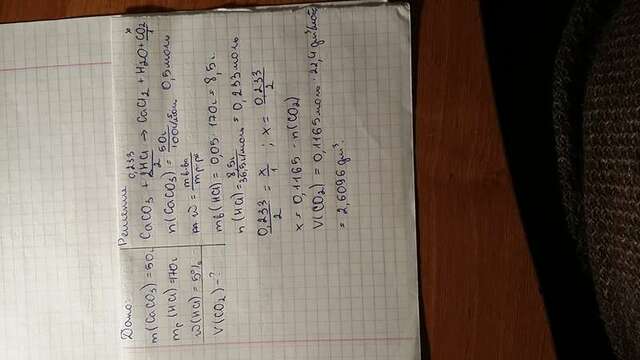 Дано:
m(CaCO3) = 50г
mр(HCl) = 170г
ω(HCl) = 5%
V(CO2) - ?
Решение
0,233 x
CaCO3 + 2HCl → CaCl2 + H2O + CO2
2 1
n(CaCO3) = 50г / 100г/моль 0,5 моль
ω = mв-ва / mр-ра
mв(HCl) = 0,05 · 170г = 8,5г
n(HCl) = 8,5г / 36,5г/моль = 0,233моль
0,233/2 = x/1 ; x = 0,233/2
x = 0,1165 - n(CO2)
V(CO2) = 0,1165моль · 22,4 дм³/моль
= 2,6096 дм³.